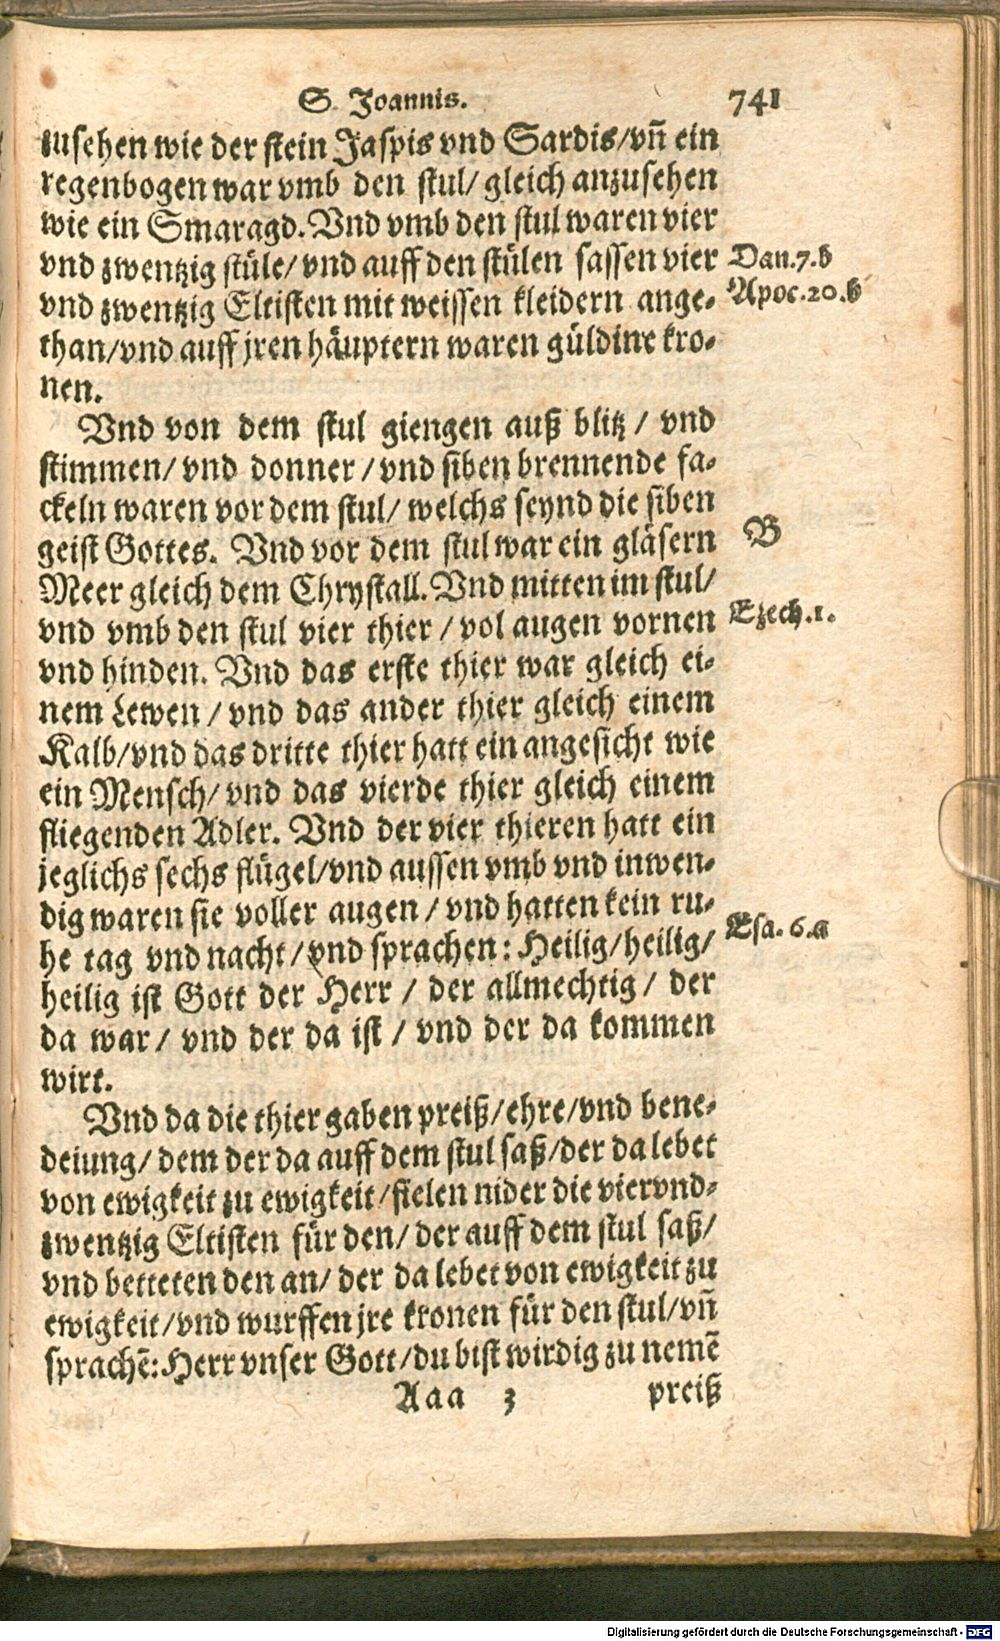 S. Joannis. 741
zusehen wie der stein Jaspis vnd Sardis/vñ ein
regenbogen war vmb den stul/ gleich anzusehen
wie ein Smaragd. Vnd vmb den stul waren vier
vnd zwentzig stüle/ vnd auff den stülen sassen vier
Dan.7.b
vnd zwentzig Eltisten mit weissen kleidern ange-
Apoc.20.b
than/vnd auff jren häuptern waren güldine kro-
nen.
Vnd von dem stul giengen auß blitz / vnd
stimmen/ vnd donner / vnd siben brennende fa-
ckeln waren vor dem stul/ welchs seynd die siben
geist Gottes. Vnd vor dem stul war ein gläsern
B
Meer gleich dem Chrystall. Vnd mitten im stul/
vnd vmb den stul vier thier / vol augen vornen
Ezech.1.
vnd hinden. Vnd das erste thier war gleich ei-
nem Lewen / vnd das ander thier gleich einem
Kalb/vnd das dritte thier hatt ein angesicht wie
ein Mensch/ vnd das vierde thier gleich einem
fliegenden Adler. Vnd der vier thieren hatt ein
jeglichs sechs flügel/vnd aussen vmb vnd inwen-
dig waren sie voller augen / vnd hatten kein ru-
Esa. 6.a
he tag vnd nacht / vnd sprachen: Heilig/heilig/
heilig ist Gott der Herr / der allmechtig / der
da war / vnd der da ist / vnd der da kommen
wirt.
Vnd da die thier gaben preiß/ehre/vnd bene-
deiung/ dem der da auff dem stul saß/der da lebet
von ewigkeit zu ewigkeit/fielen nider die viervnd-
zwentzig Eltisten für den/ der auff dem stul saß/
vnd betteten den an/ der da lebet von ewigkeit zu
ewigkeit/vnd wurffen jre kronen für den stul/vñ
sprachẽ: Herr vnser Gott/du bist wirdig zu nemẽ
Aaa 3 preiß
Digitalisierung gefördert durch die Deutsche Forschungsgemeinschaft - DFG